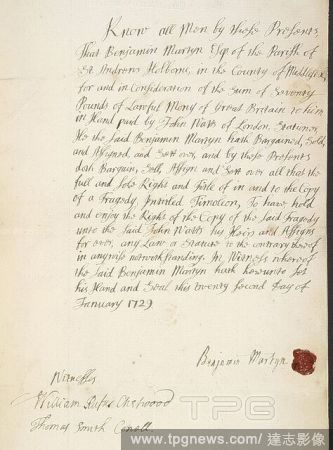 Know all Men by these Presents
That Benjamin Martyn Esqr. of the Parish of
St Andrews Holborn, in the County of Middlesex,
for and in Consideration of the Sum of Seventy
Pounds of Lawful Mony of Great Britain to him
in Hand paid by John Watts of London, Stationer,
He the said Benjamin Martyn hath Bargained, Sold,
and Assigned, and Sett over, and by these Presents
doth Bargain, Sell, Assign and Sett over all that the
full and Sole Right and Title of in and to the Copy
of a Tragedy, Intitled Timoleon, To have hold
and enjoy the Right of the Copy of the said Tragedy
unto the said John Watts his Heirs and Assigns
for ever, any Law or Statute to the contrary thereof
in anywise notwithstanding. In Witness whereof
the said Benjamin Martyn hath hereunto set
his Hand and Seal this twenty second Day of
January 1729
Benjamin Martyn
Witnesses
William Rufus Chetwood
Thomas Smith
TPG
www.tpgnews.com/達志影像